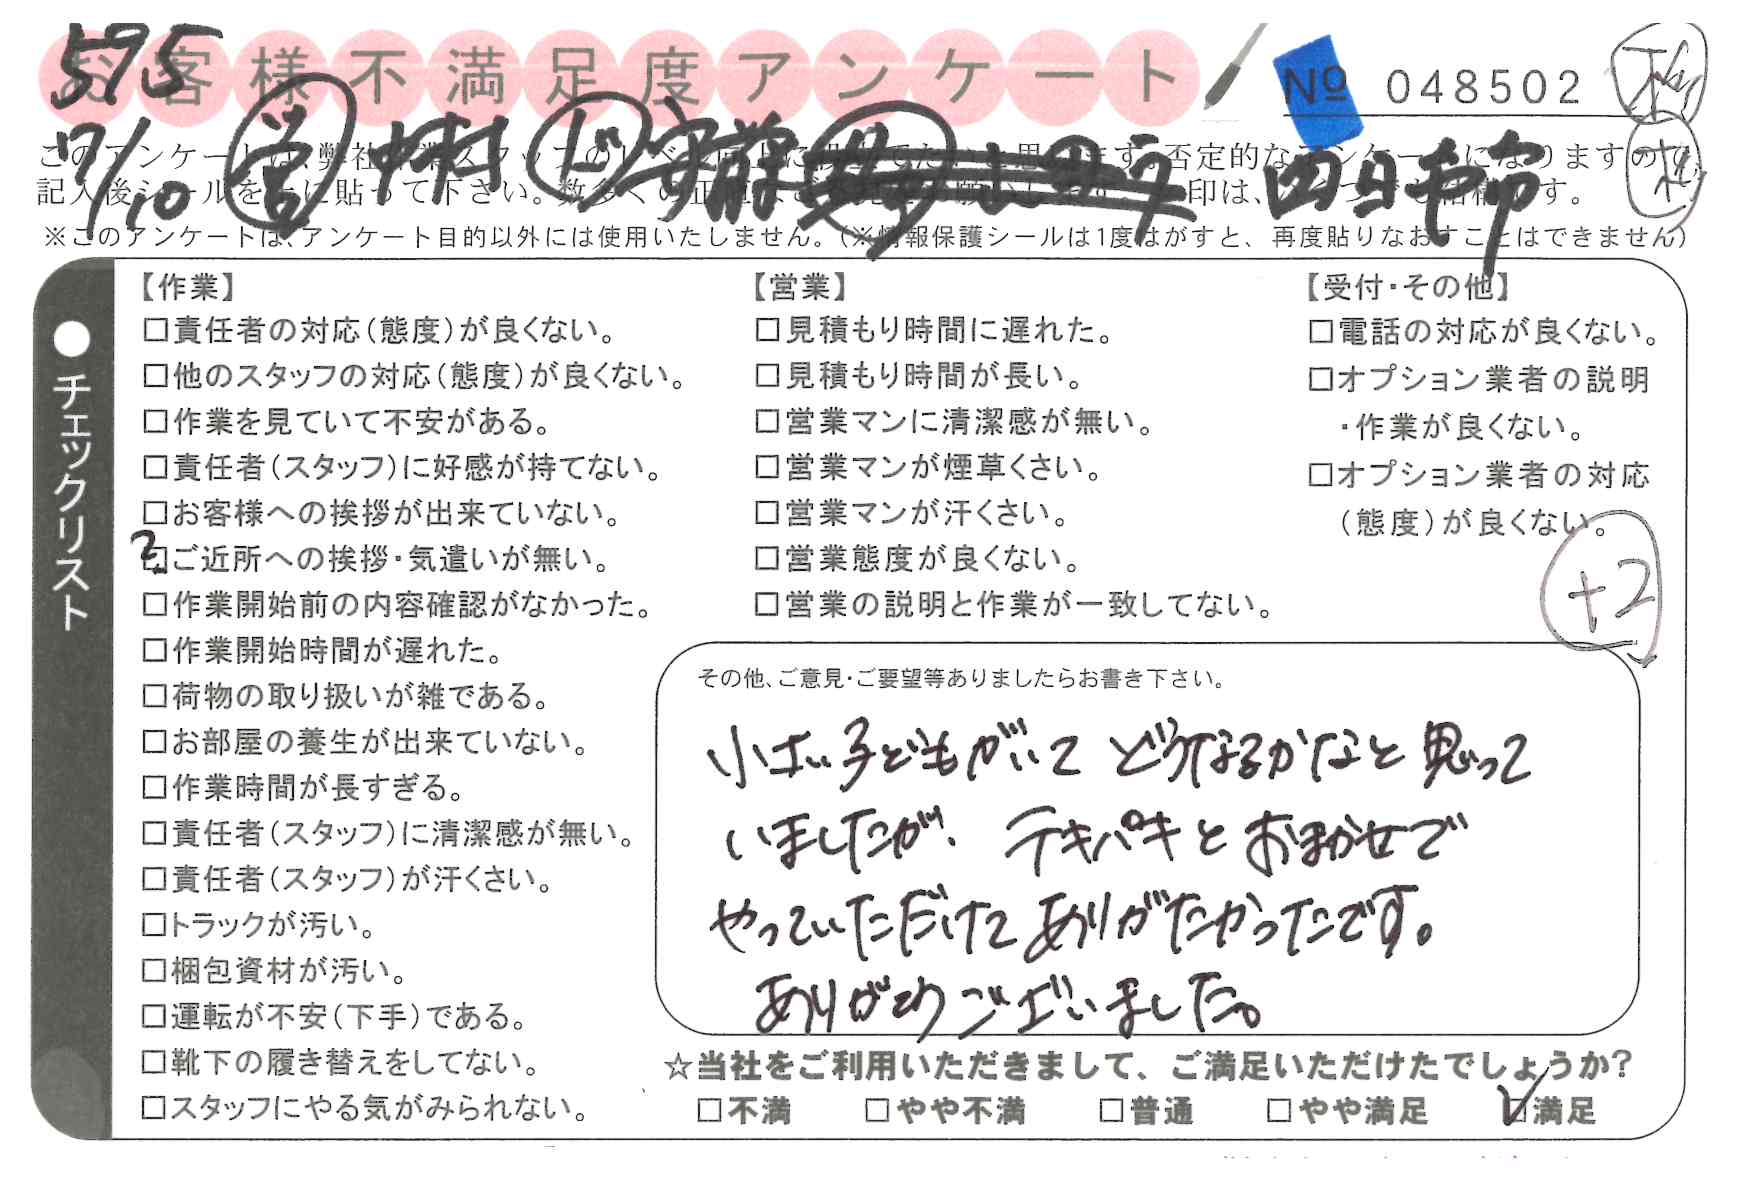 595
お客様不満足度アンケート
№ 048502
7/10 営 中村 ド 安藤 四日市
※このアンケートは、アンケート目的以外には使用いたしません。(※情報保護シールは1度はがすと、再度貼りなおすことはできません)
●チェックリスト
【作業】
□責任者の対応(態度)が良くない。
□他のスタッフの対応(態度)が良くない。
□作業を見ていて不安がある。
□責任者(スタッフ)に好感が持てない。
□お客様への挨拶が出来ていない。
?
□ご近所への挨拶・気遣いが無い。
□作業開始前の内容確認がなかった。
□作業開始時間が遅れた。
□荷物の取り扱いが雑である。
□お部屋の養生が出来ていない。
□作業時間が長すぎる。
□責任者(スタッフ)に清潔感が無い。
□責任者(スタッフ)が汗くさい。
□トラックが汚い。
□梱包資材が汚い。
□運転が不安(下手)である。
□靴下の履き替えをしてない。
□スタッフにやる気がみられない。
【営業】
□見積もり時間に遅れた。
□見積もり時間が長い。
□営業マンに清潔感が無い。
□営業マンが煙草くさい。
□営業マンが汗くさい。
□営業態度が良くない。
□営業の説明と作業が一致してない。
【受付・その他】
□電話の対応が良くない。
□オプション業者の説明
・作業が良くない。
□オプション業者の対応
(態度)が良くない。
+2
その他、ご意見・ご要望等ありましたらお書き下さい。
小さい子どもがいて どうなるかなと思って
いましたが、テキパキとおまかせで
やっていただけてありがたかったです。
ありがとうございました。
☆当社をご利用いただきまして、ご満足いただけたでしょうか?
□不満 □やや不満 □普通 □やや満足 ☑満足